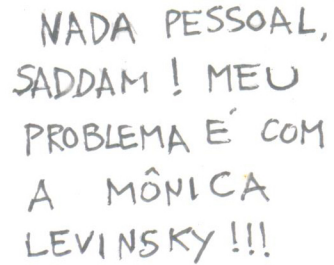 NADA PESSOAL,
SADDAM! MEU
PROBLEMA É COM
A MÔNICA
LEVINSKY!!!